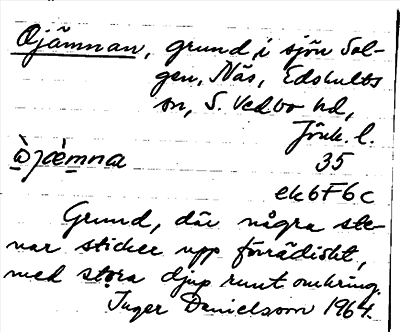 Ojämnan, grund i sjön Sol-
gen, Näs, Edshults
sn, S. Vedbo hd,
Jönk. l.
òjæ̀mna 35
ek6F6c
Grund, där några ste-
nar sticker upp förrädiskt,
med stora djup runt omkring.
Inger Danielsson 1964.